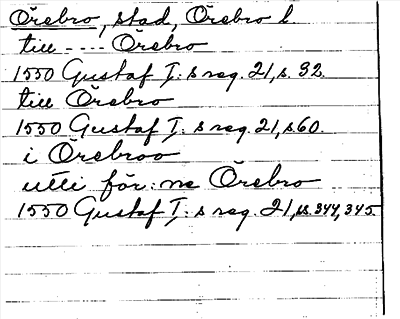 Örebro, stad, Örebro l.
till ---- Örebro
1550 Gustaf I:s reg. 21, s. 32.
till Örebro
1550 Gustaf I:s reg. 21, s 60.
i Örebroo
utti för:ne Örebro
1550 Gustaf I:s reg. 21, ss. 344, 345.